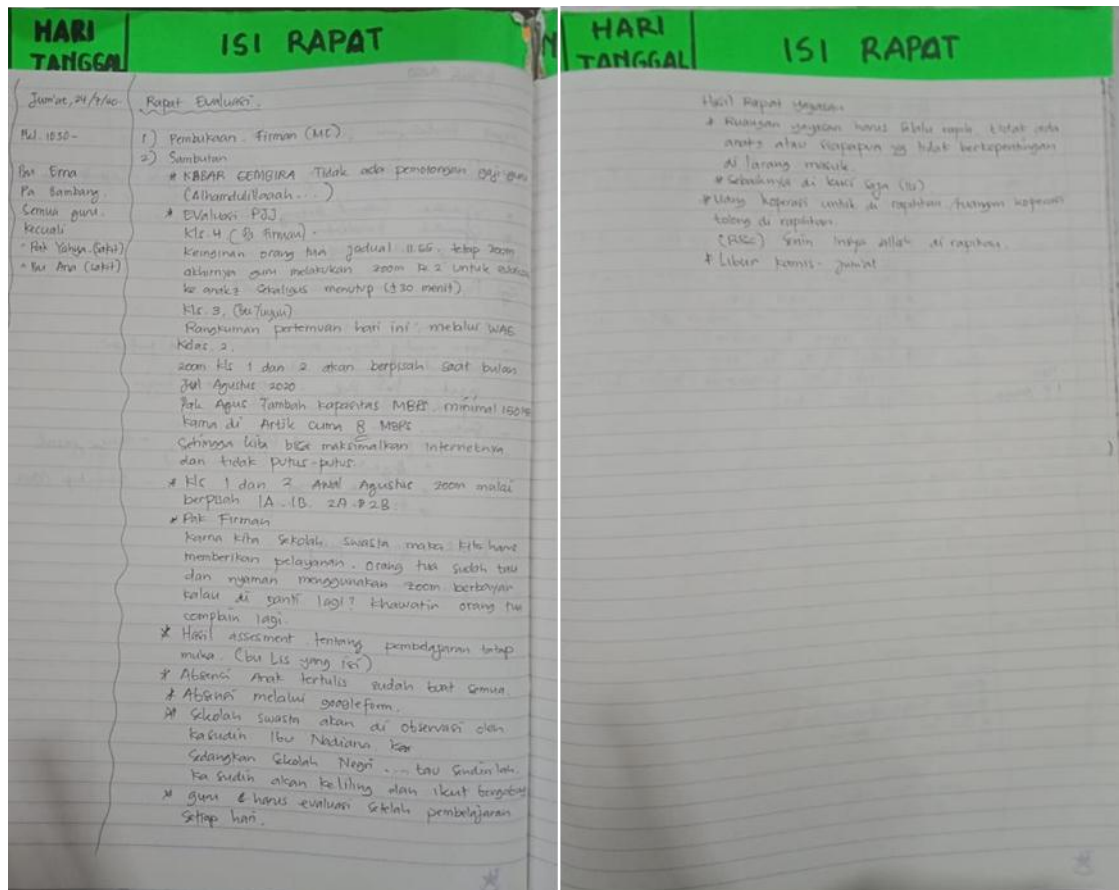 HARI
TANGGAL
ISI RAPAT
Jum'at, 24/7/20
Pkl. 10.30 -
Bu Erna
Pa Bambang.
Semua guru.
kecuali
- Pak Yahya (Sakit)
- Bu Ana (Sakit)
Rapat Evaluasi.
1) Pembukaan. Firman (MC)
2) Sambutan
* KABAR GEMBIRA Tidak ada pemotongan gaji guru
(Alhamdulillaaah...)
* Evaluasi PJJ.
Kls. 4 (P. Firman).
Keinginan orang tua jadual tetap zoom
akhirnya guru melakukan zoom ke 2 untuk
ke anak2 Sekaligus menutup (±30 menit)
Kls. 3,
Rangkuman pertemuan hari ini melalui WAG
Kelas. 2.
zoom kls 1 dan 2 akan berpisah saat bulan
Agustus 2020
Pak Agus Tambah kapasitas MBPS minimal
karna di Artik cuma 8 MBPS
Sehingga kita bisa maksimalkan Internetnya
dan tidak putus-putus.
* Kls 1 dan 2 Awal Agustus zoom mulai
berpisah 1A. 1B. 2A. 2B
* Pak Firman
Karna kita Sekolah Swasta maka kita harus
memberikan pelayanan. orang tua sudah tau
dan nyaman menggunakan zoom berbayar
kalau di ganti lagi? khawatir orang tua
complain lagi.
* Hasil assesment tentang pembelajaran tatap
muka. (bu Lis yang isi)
* Absensi Anak tertulis sudah buat semua.
* Absensi melalui googleform.
* Sekolah swasta akan di observasi oleh
kasudin Ibu Nadiana
Sedangkan Sekolah Negri ... tau Sendirilah.
Ka sudin akan keliling dan ikut bergabung
* guru harus evaluasi Setelah pembelajaran
Setiap hari.
HARI
TANGGAL
ISI RAPAT
Hasil Rapat Yayasan
* Ruangan yayasan harus selalu rapih tidak ada
anak2 atau siapapun yg tidak berkepentingan
di larang masuk.
* Sebaiknya di kunci saja
* Uang koperasi untuk di rapihkan koperasi
tolong di rapihkan.
Senin Insya allah di rapihkan.
* Libur kamis - Jum'at